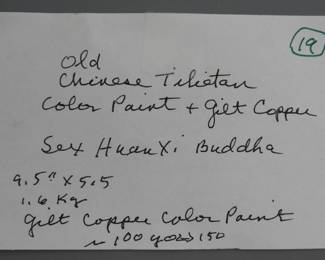 19
Old
Chinese Tibetan
Color Paint + Gilt Copper
Sex HuanXi Buddha
9.5" x 5.5
1.6 Kg
gilt Copper Color Paint
~ 100 years 150